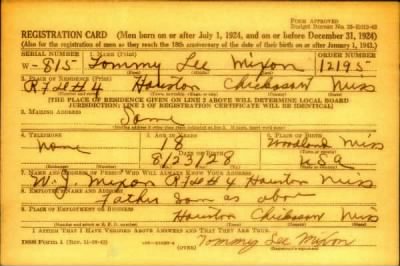 FORM APPROVED
REGISTRATION CARD (Men born on or after July 1, 1924, and on or before December 31, 1924)
(Also for the registration of men as they reach the 18th anniversary of the date of their birth on or after January 1, 1943.)
SERIAL NUMBER 1. NAME (Print) ORDER NUMBER
W-815 Tommy Lee Mixon 12195
2. PLACE OF RESIDENCE (Print)
RFD#4 Houston Chickasaw Miss
[THE PLACE OF RESIDENCE GIVEN ON LINE 2 ABOVE WILL DETERMINE LOCAL BOARD
JURISDICTION; LINE 2 OF REGISTRATION CERTIFICATE WILL BE IDENTICAL]
3. MAILING ADDRESS
Same
4. TELEPHONE 6. PLACE OF BIRTH
None 18 Woodland Miss
8/23/28 USA
7. NAME AND ADDRESS OF PERSON WHO WILL ALWAYS KNOW YOUR ADDRESS
Mixon RFD#4 Houston Miss
8. EMPLOYER'S NAME AND ADDRESS
Father Same as above
9. PLACE OF EMPLOYMENT OR BUSINESS
Houston Chickasaw Miss
I AFFIRM THAT I HAVE VERIFIED ABOVE ANSWERS AND THAT THEY ARE TRUE.
DSS Form 1 (OVER) Tommy Lee Mixon